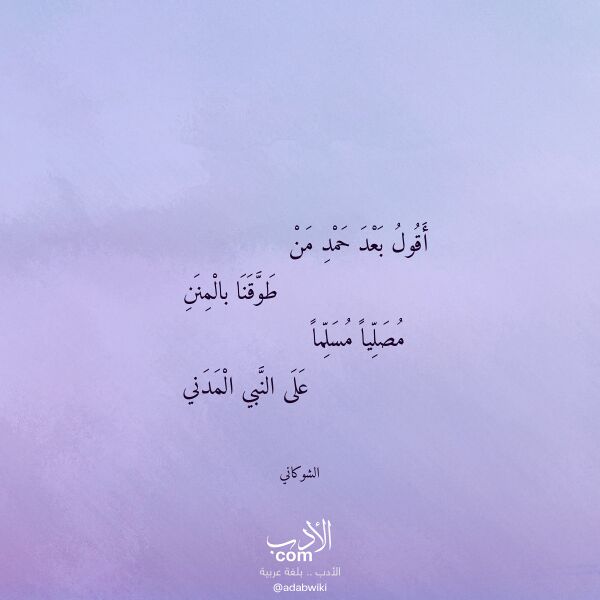 أَقُولُ بَعْدَ حَمْدِ مَنْ
طَوَّقَنَا بالْمِنَنِ
مُصَلِّياً مُسَلِّماً
عَلَى النَّبي الْمَدَني
الشوكاني
الأدب
com
الأدب .. بلغة عربية
@adabwiki